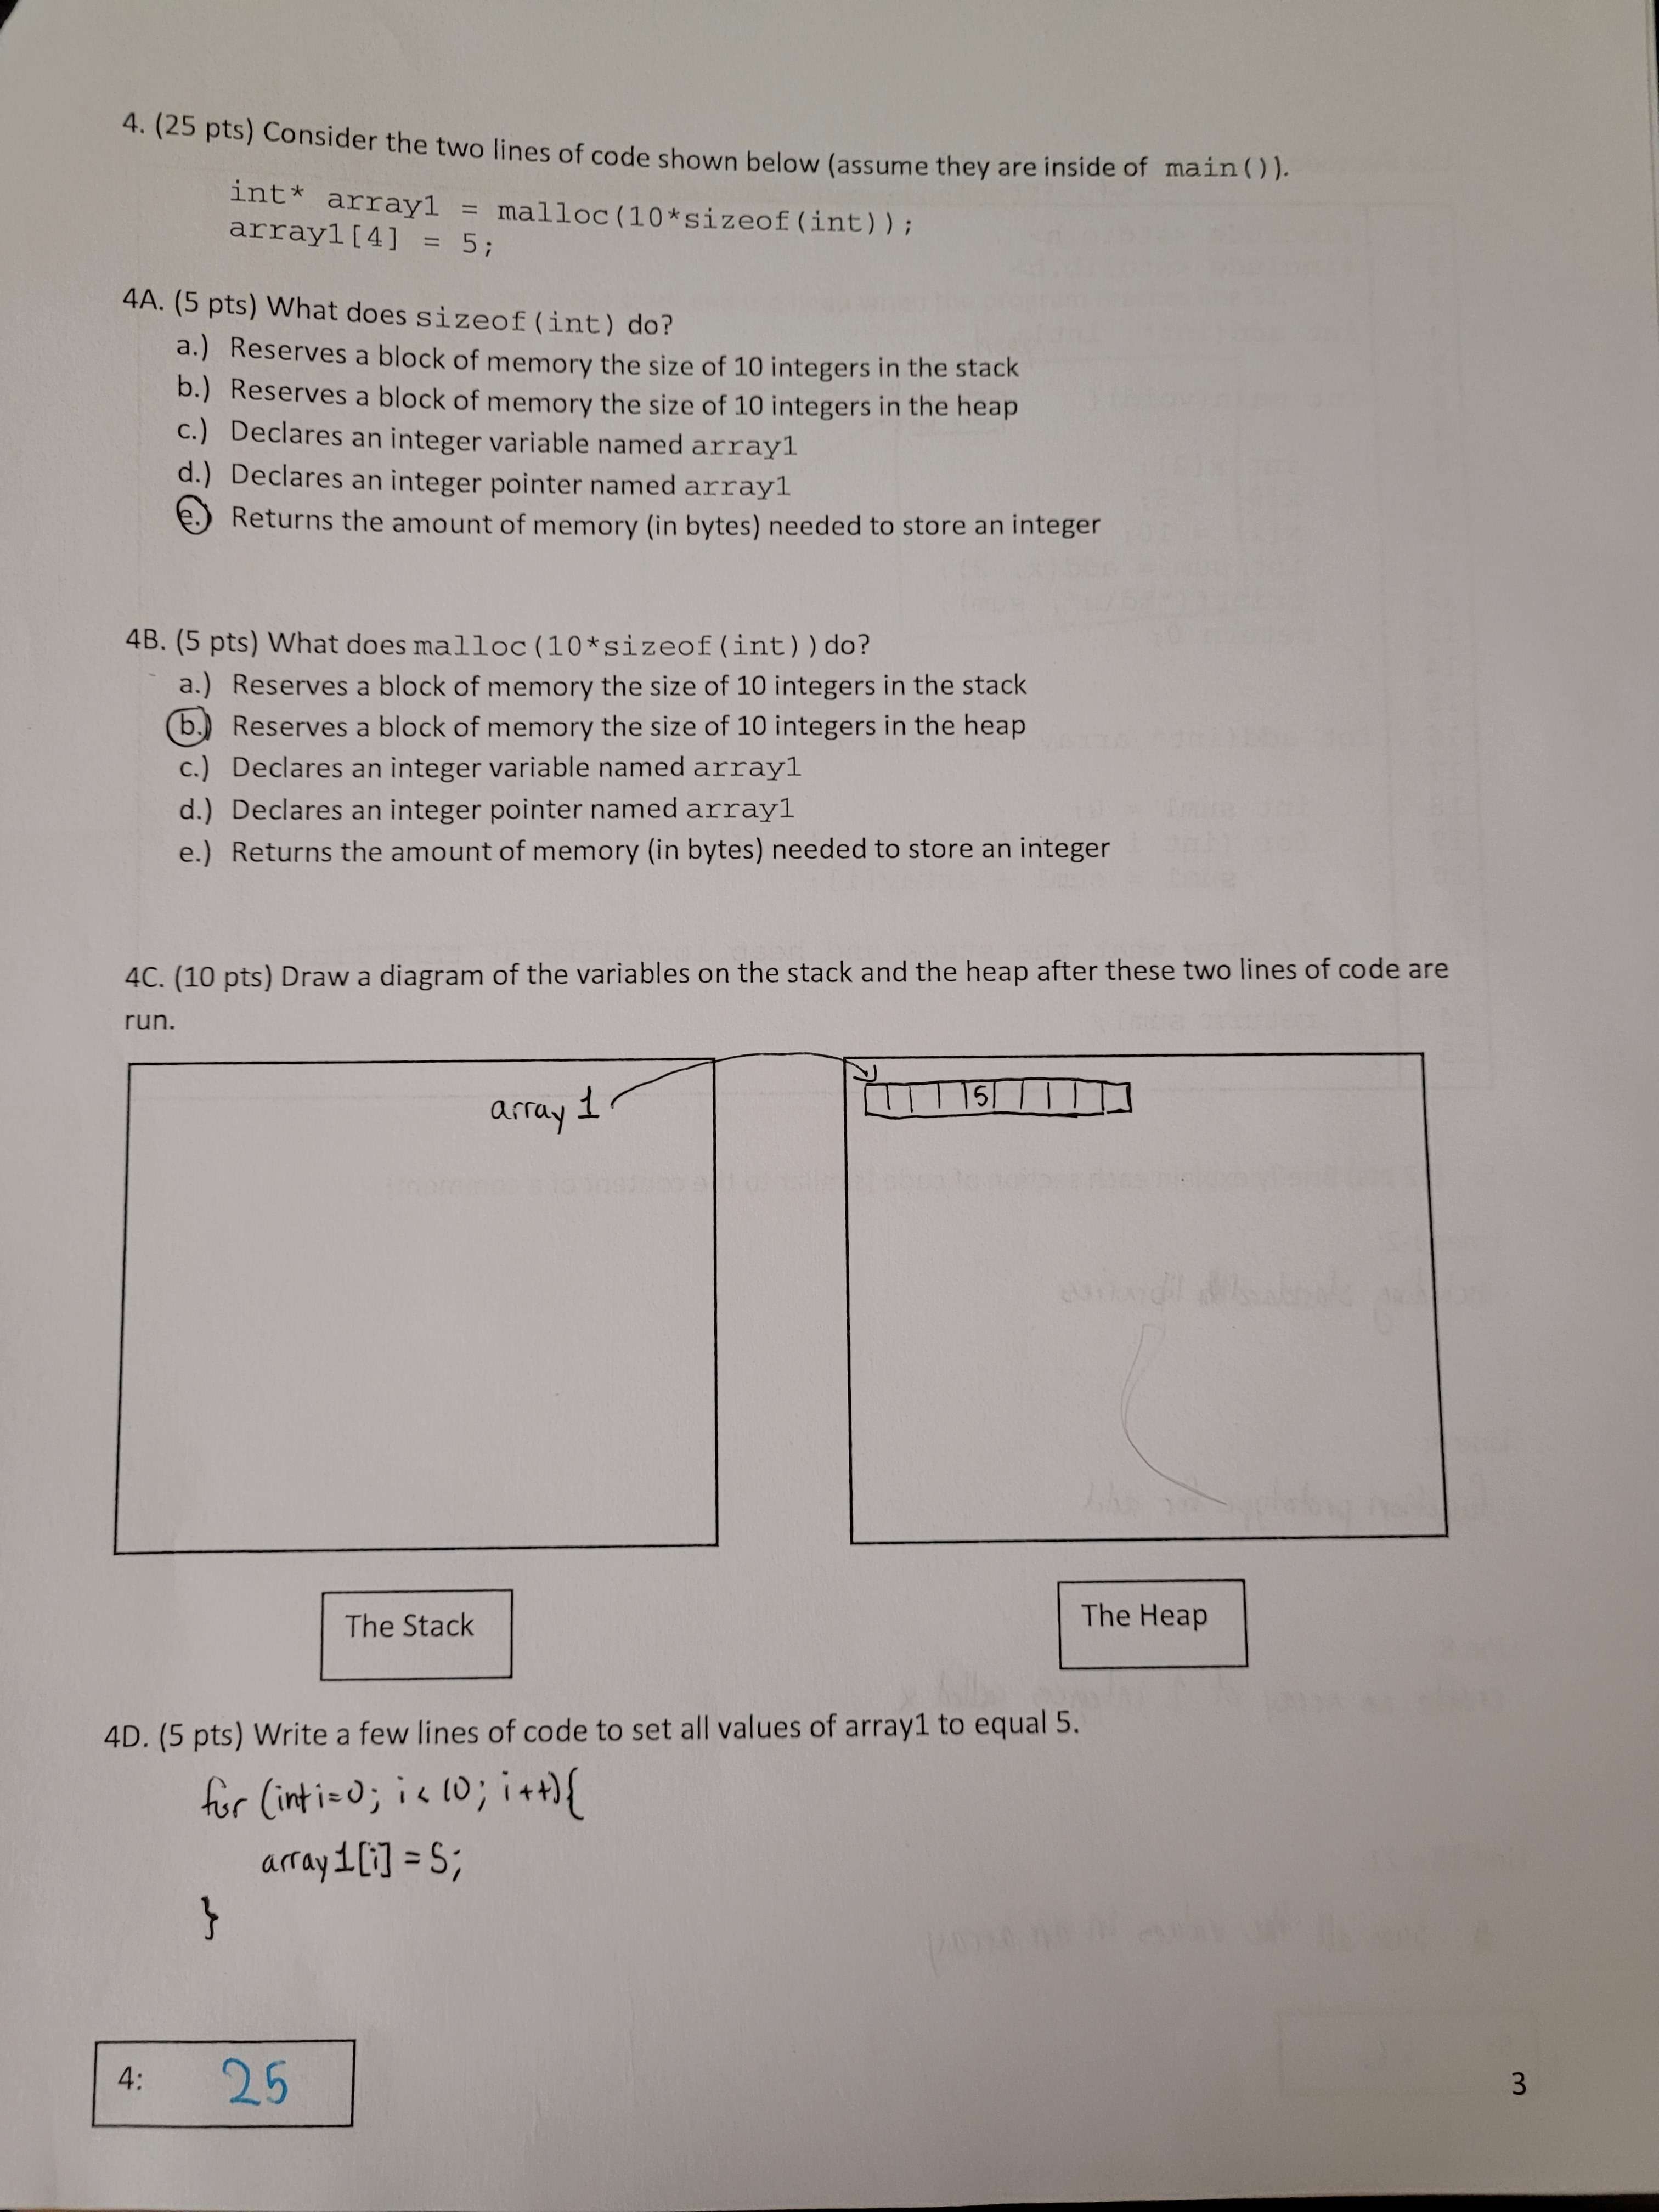 4. (25 pts) Consider the two lines of code shown below (assume they are inside of main()).
int* array1 = malloc(10*sizeof(int));
array1[4] = 5;
4A. (5 pts) What does sizeof(int) do?
a.) Reserves a block of memory the size of 10 integers in the stack
b.) Reserves a block of memory the size of 10 integers in the heap
c.) Declares an integer variable named array1
d.) Declares an integer pointer named array1
e.) Returns the amount of memory (in bytes) needed to store an integer
4B. (5 pts) What does malloc(10*sizeof(int)) do?
a.) Reserves a block of memory the size of 10 integers in the stack
b.) Reserves a block of memory the size of 10 integers in the heap
c.) Declares an integer variable named array1
d.) Declares an integer pointer named array1
e.) Returns the amount of memory (in bytes) needed to store an integer
4C. (10 pts) Draw a diagram of the variables on the stack and the heap after these two lines of code are
run.
array 1
5
The Stack
The Heap
4D. (5 pts) Write a few lines of code to set all values of array1 to equal 5.
for (int i=0; i < 10; i++){
array1[i] = 5;
}
4: 25
3